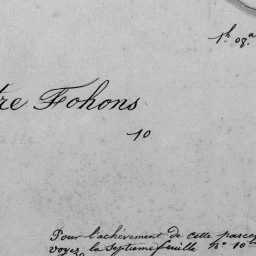 1h 03a
tre Fohons
10
Pour l'achèvement de cette parce
voyez la Septieme feuille n° 10